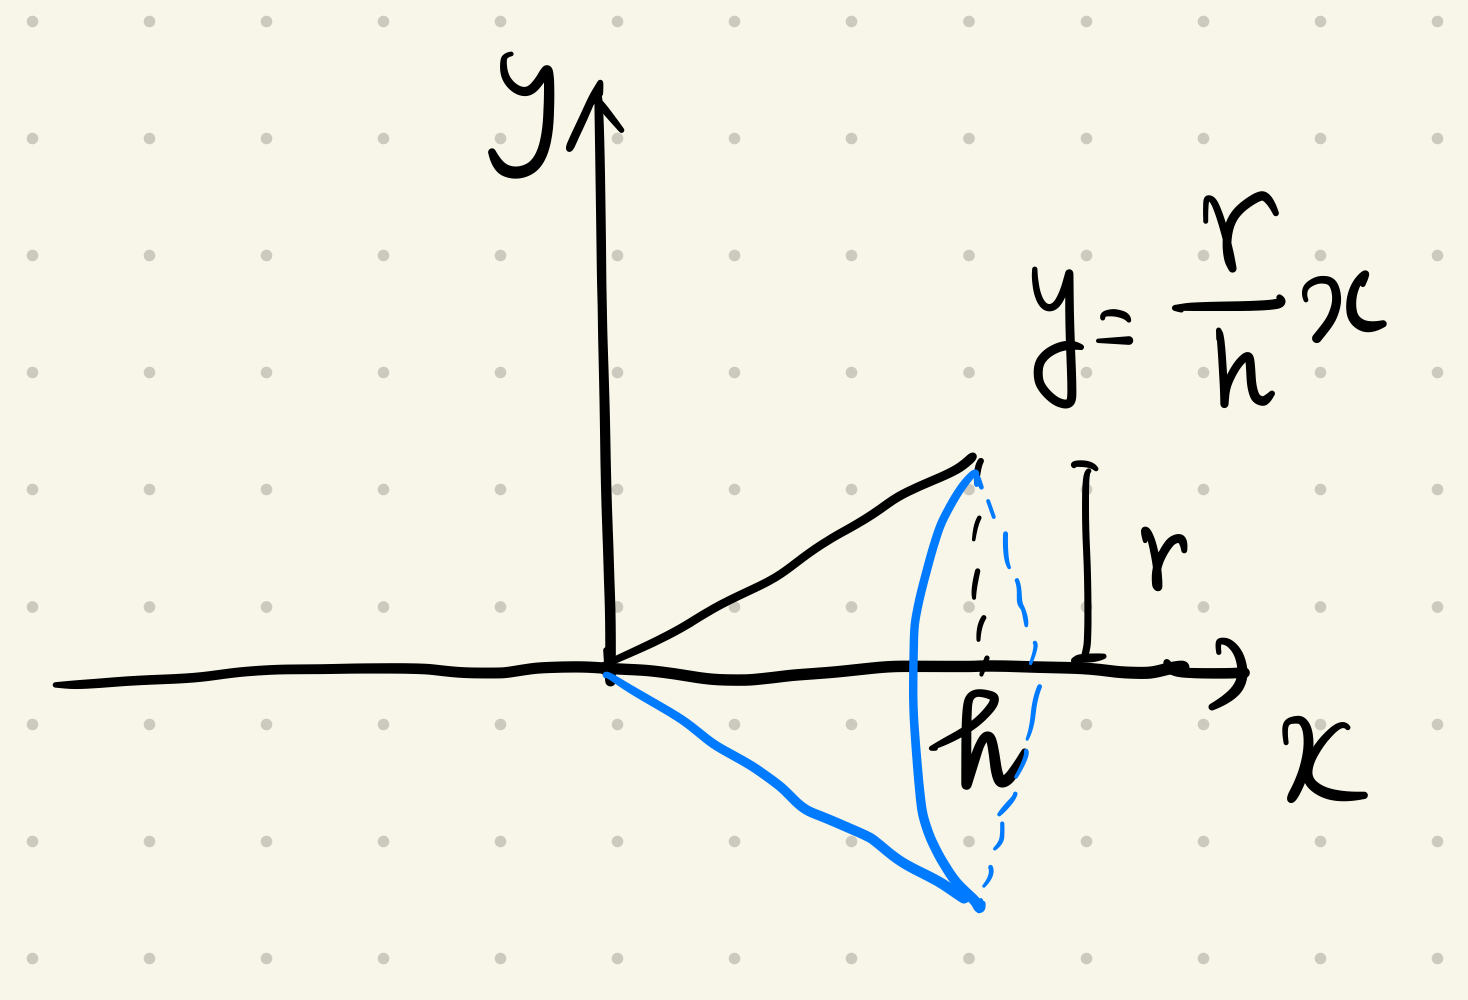 y
y = r/h x
r
h
x